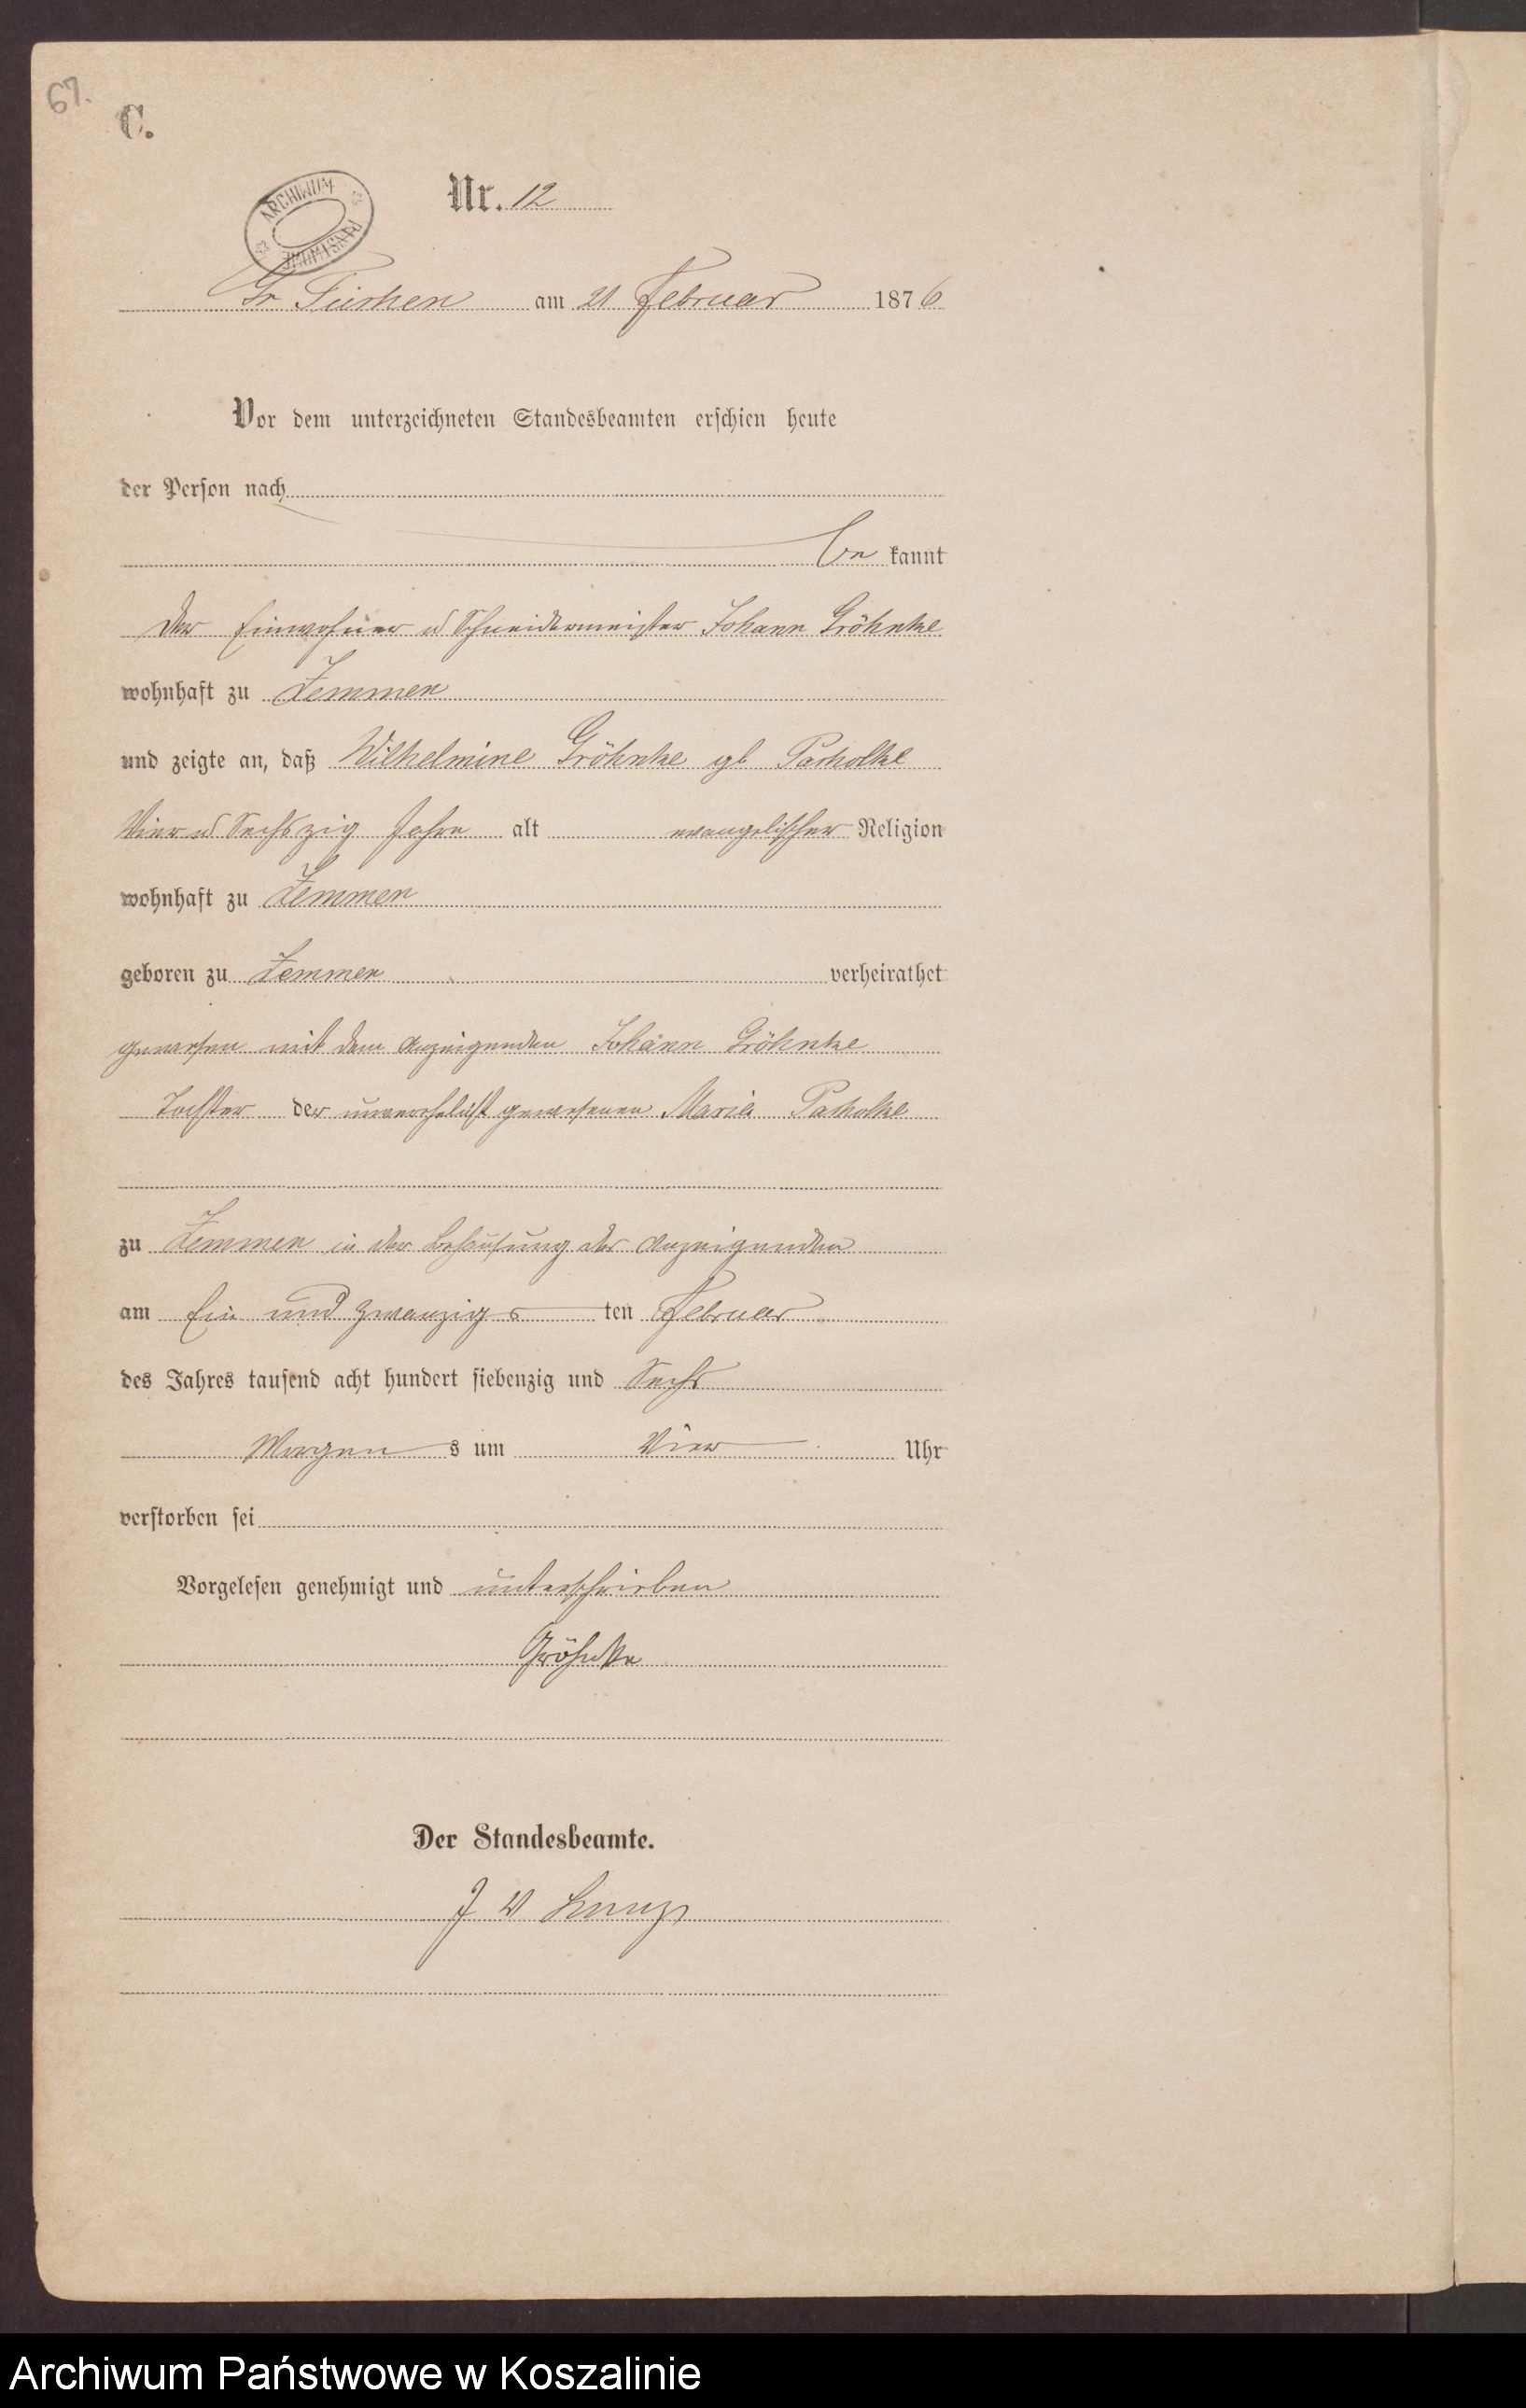 67.
C.
ARCHIWUM PAŃSTWOWE
Nr. 12
Gr Tuchen am 21 Februar 1876
Vor dem unterzeichneten Standesbeamten erschien heute
der Person nach
be kannt
der Einwohner u Schneidermeister Johann Gröhnke
wohnhaft zu Zemmen
und zeigte an, daß Wilhelmine Gröhnke gb Pascholke
Vier u Sechszig Jahre alt evangelischer Religion
wohnhaft zu Zemmen
geboren zu Zemmen verheirathet
gewesen mit dem Anzeigenden Johann Gröhnke
Tochter der unverehelicht gewesenen Marie Pascholke
zu Zemmen in der Behausung des Anzeigenden
am Ein und zwanzigs ten Februar
des Jahres tausend acht hundert siebenzig und Sechs
Morgen s um Vier Uhr
verstorben sei
Vorgelesen genehmigt und unterschrieben
Gröhnke
Der Standesbeamte.
J W
Archiwum Państwowe w Koszalinie